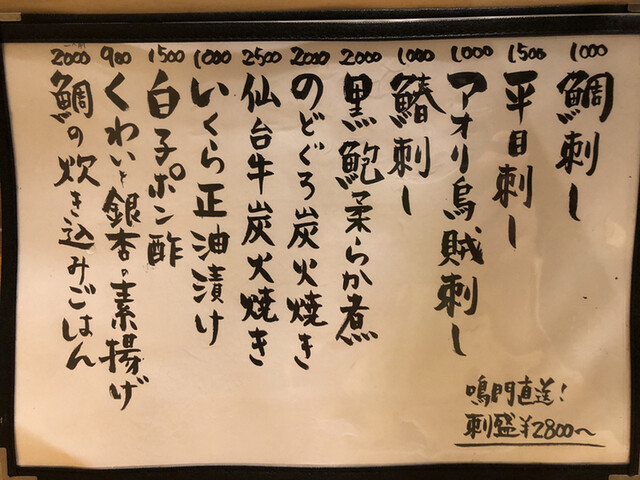 1000
鯛刺し
1500
平目刺し
1000
アオリ烏賊刺し
1000
鰆刺し
2000
黒鮑柔らか煮
2000
のどぐろ炭火焼き
2500
仙台牛炭火焼き
1000
いくら正油漬け
1500
白子ポン酢
900
くわいと銀杏の素揚げ
2000
鯛の炊き込みごはん
鳴門直送!
刺盛¥2800〜